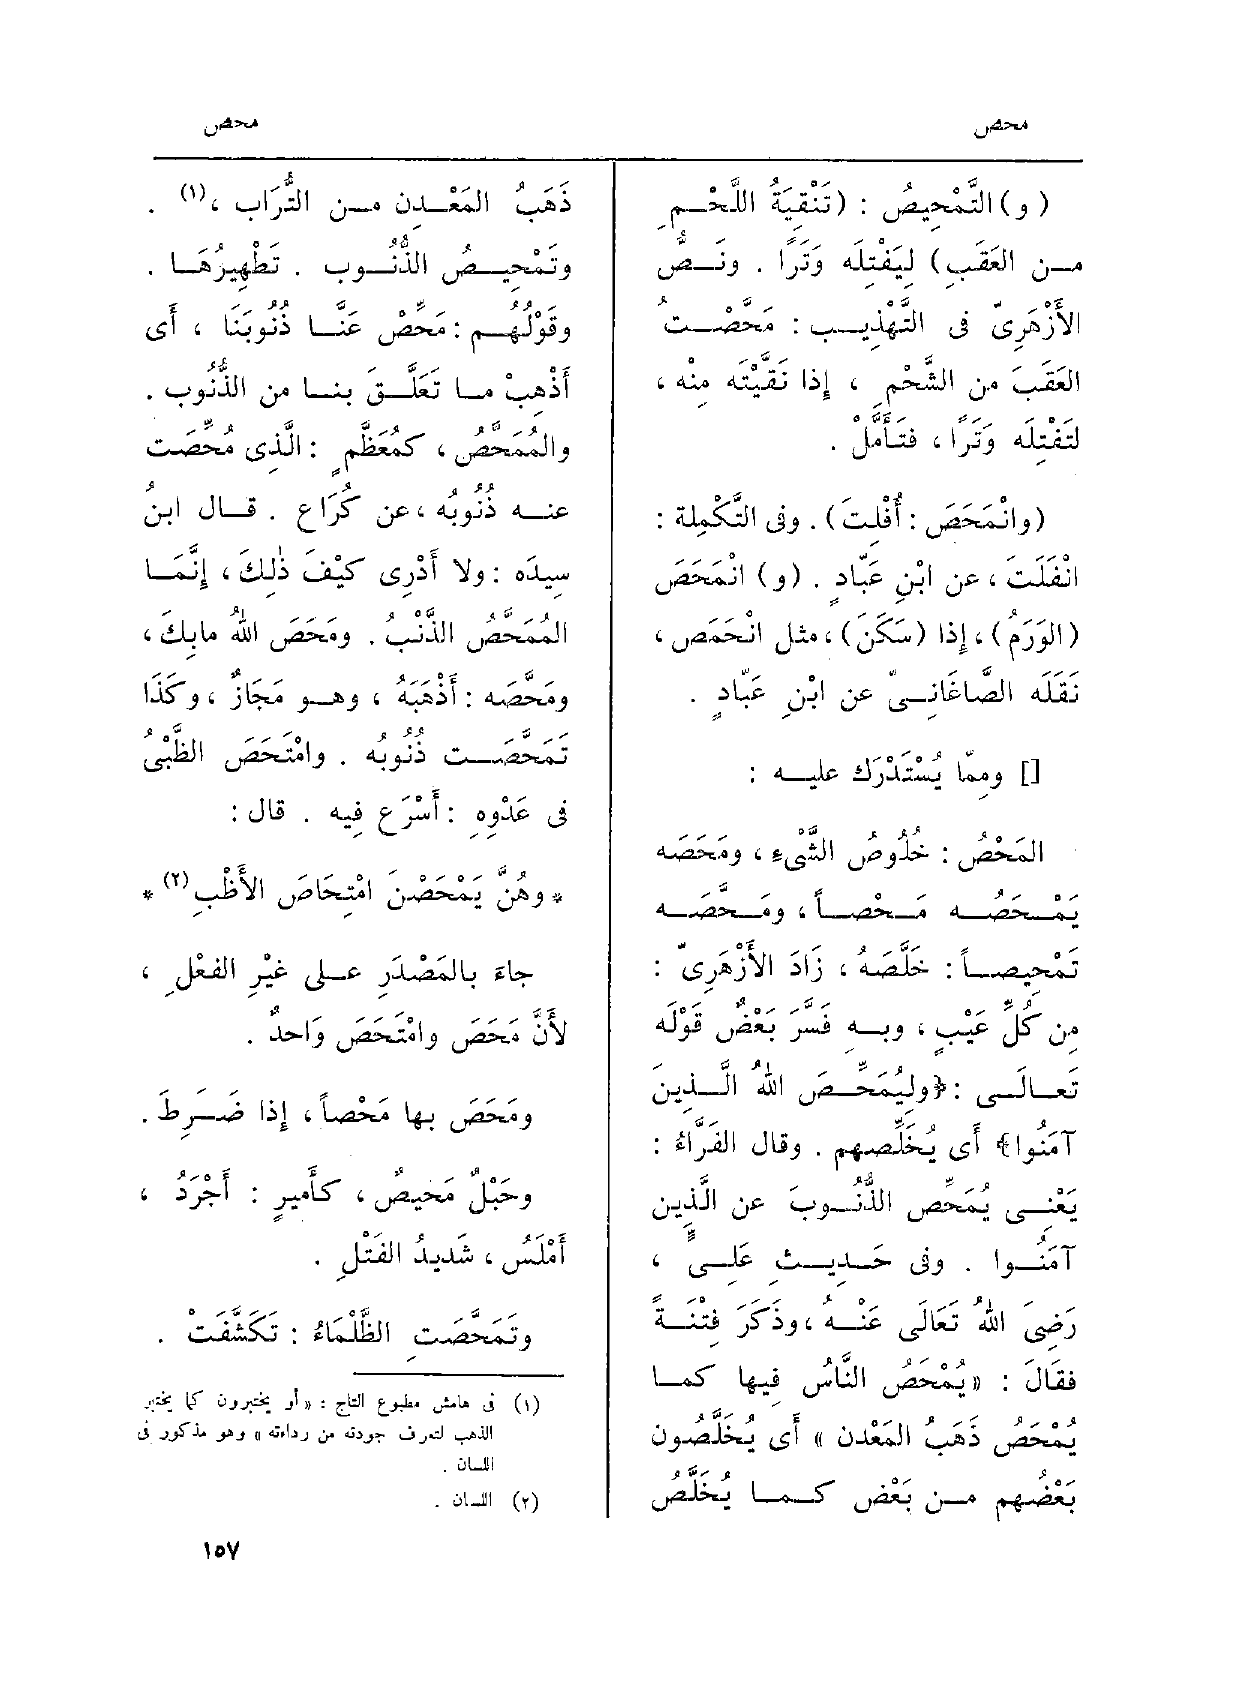 محض
محض
(و) التَّمْحِيصُ : (تَنْقِيَةُ اللَّحْمِ
مِن العَقَبِ) لِيَفْتِلَه وَتَرًا . ونَصُّ
الأَزْهَرِيّ فى التَّهْذِيب : مَحَّصْتُ
العَقَبَ من الشَّحْمِ ، إِذا نَقَّيْتَه مِنْه ،
لتَفْتِلَه وَتَرًا ، فتَأَمَّلْ .
(وانْمَحَصَ : أُفْلِتَ) . وفى التَّكْمِلة :
انْفَلَتَ ، عن ابْنِ عَبّادٍ . (و) انْمَحَصَ
(الوَرَمُ) ، إِذا (سَكَنَ) ، مثل انْحَمَصَ ،
نَقَلَه الصَّاغَانِيّ عن ابْنِ عَبّادٍ .
[] وممّا يُسْتَدْرَك عليه :
المَحْصُ : خُلُوصُ الشَّىءِ ، ومَحَصَه
يَمْحَصُه مَحْصاً ، ومَحَّصَه
تَمْحِيصاً : خَلَّصَهُ ، زَادَ الأَزْهَرِيّ :
مِن كُلِّ عَيْبٍ ، وبِه فَسَّرَ بَعْضٌ قَوْلَه
تَعالَى : ﴿ولِيُمَحِّصَ اللهُ الَّذِينَ
آمَنُوا﴾ أَى يُخَلِّصهم . وقال الفَرَّاءُ :
يَعْنِى يُمَحِّص الذُّنُوبَ عن الَّذِين
آمَنُوا . وفى حَدِيثِ عَلِىٍّ ،
رَضِىَ اللهُ تَعَالَى عَنْهُ ، وذَكَرَ فِتْنَةً
فقَالَ : « يُمْحَصُ النَّاسُ فِيها كَما
يُمْحَصُ ذَهَبُ المَعْدِن » أَى يُخَلَّصُون
بَعْضُهم مِن بَعْض كَما يُخَلَّصُ
ذَهَبُ المَعْدِن مِن التُّرَاب ،(١) .
وتَمْحِيصُ الذُّنُوب . تَطْهِيرُهَا .
وقَوْلُهُم : مَحِّصْ عَنَّا ذُنُوبَنَا ، أَى
أَذْهِبْ ما تَعَلَّق بِنا من الذُّنُوب .
والمُمَحَّصُ ، كمُعَظَّمٍ : الَّذِى مُحِّصَت
عنه ذُنُوبُه ، عن كُرَاع . قال ابنُ
سِيدَه : ولا أَدْرِى كَيْفَ ذٰلِكَ ، إِنَّمَا
المُمَحَّصُ الذَّنْبُ . ومَحَصَ اللهُ مابِكَ ،
ومَحَّصَه : أَذْهَبَهُ ، وهو مَجَازٌ ، وكَذَا
تَمَحَّصَت ذُنُوبُه . وامْتَحَصَ الظَّبْىُ
فى عَدْوِه : أَسْرَع فِيه . قال :
* وهُنَّ يَمْحَصْنَ امْتِحَاصَ الأَظْبِ(٢) *
جاءَ بالمَصْدَرِ على غَيْرِ الفِعْلِ ،
لأَنَّ مَحَص وامْتَحَصَ وَاحدٌ .
ومَحَصَ بها مَحْصاً ، إِذا ضَرَطَ .
وحَبْلٌ مَحِيصٌ ، كأَمِيرٍ : أَجْرَدُ ،
أَمْلَسُ ، شَدِيدُ الفَتْلِ .
وتَمَحَّصَتِ الظَّلْمَاءُ : تَكَشَّفَتْ .
(١) فى هامش مطبوع التاج : « أو يختبرون كما يختبر
الذهب لتعرف جودته من رداءته » وهو مذكور فى
اللسان .
(٢) اللسان .
١٥٧